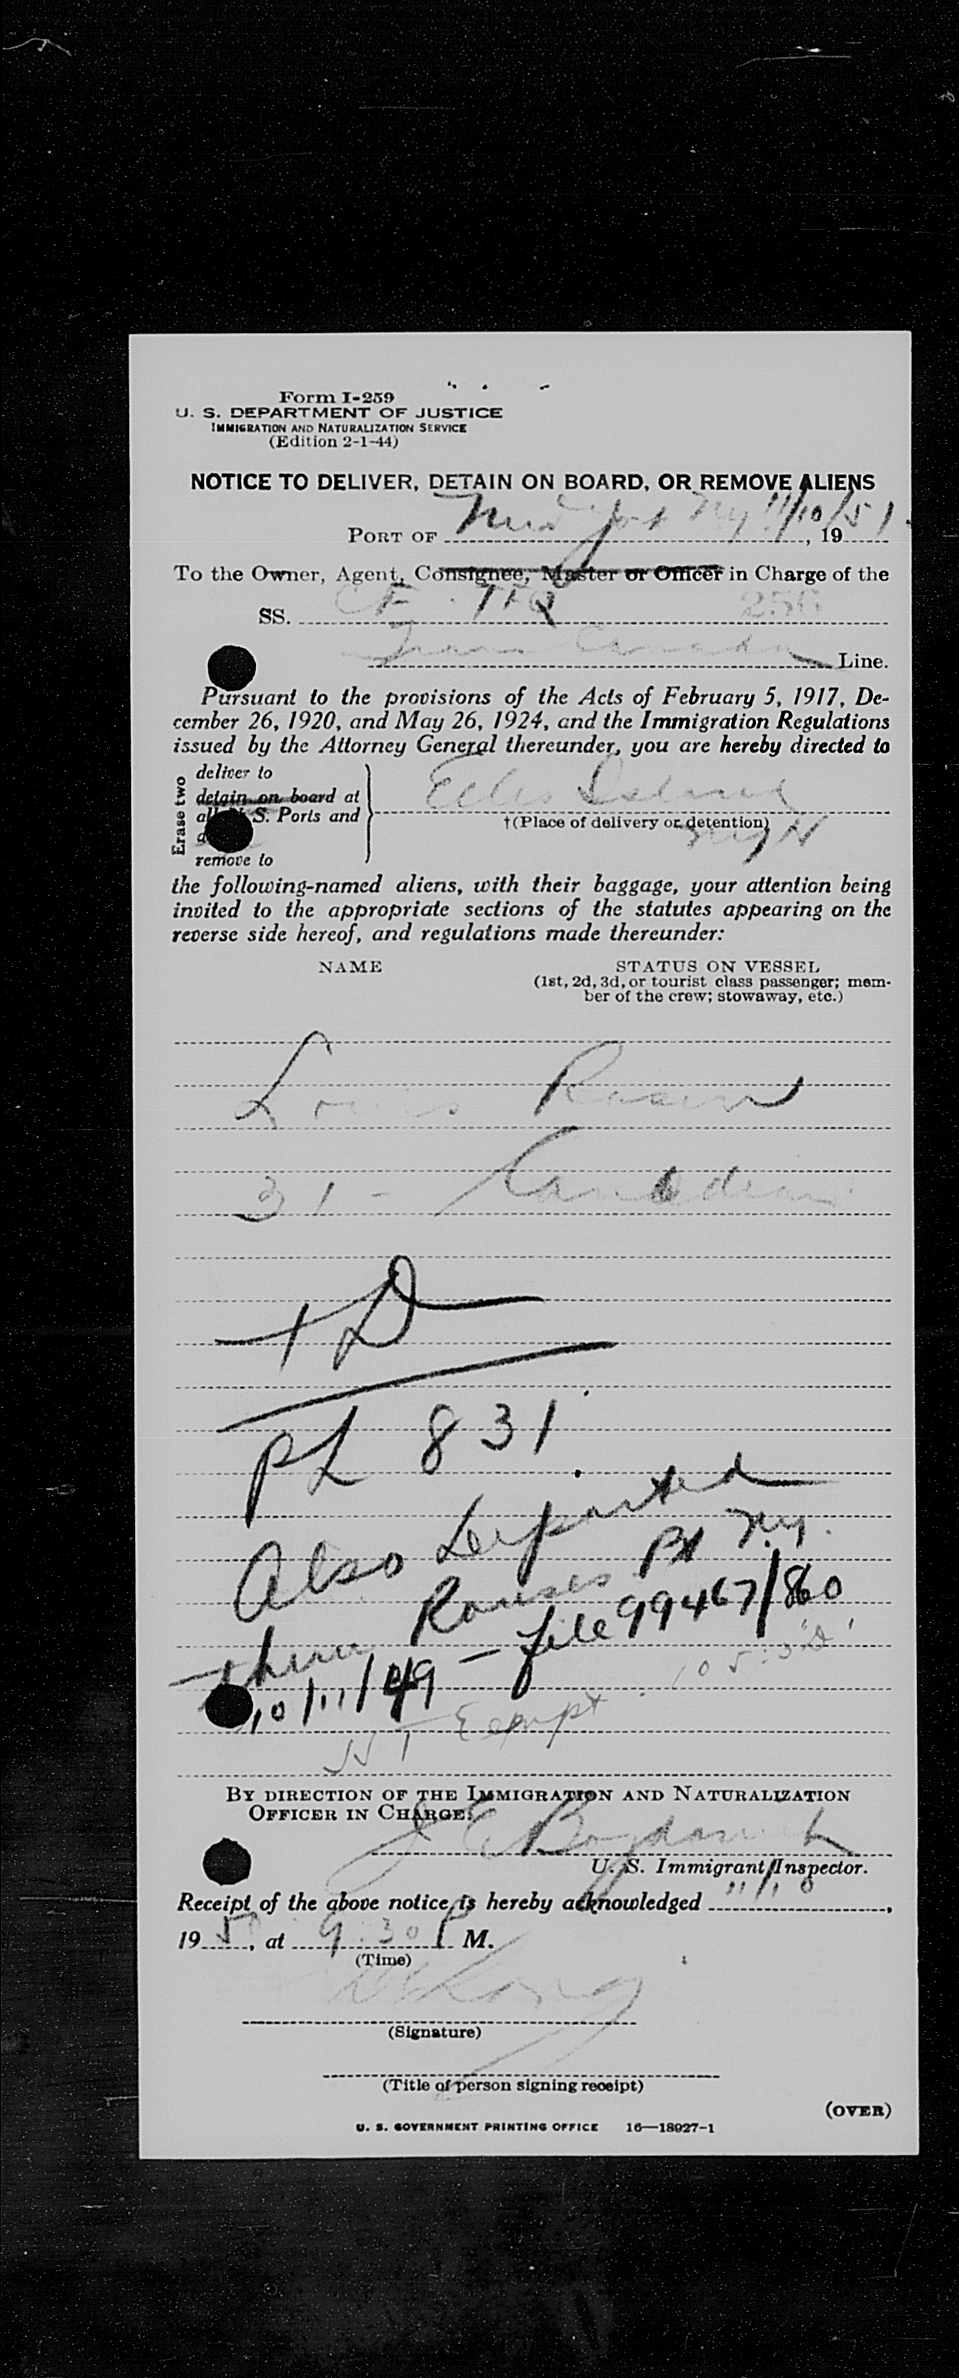 Form I-259
U. S. DEPARTMENT OF JUSTICE
IMMIGRATION AND NATURALIZATION SERVICE
(Edition 2-1-44)
NOTICE TO DELIVER, DETAIN ON BOARD, OR REMOVE ALIENS
PORT OF New York NY 11/10/51, 19
To the Owner, Agent, Consignee, Master or Officer in Charge of the
SS. CF-TFQ 256
Trans Canada Line.
Pursuant to the provisions of the Acts of February 5, 1917, De-
cember 26, 1920, and May 26, 1924, and the Immigration Regulations
issued by the Attorney General thereunder, you are hereby directed to
Erase two
deliver to
detain on board at
all U. S. Ports and
remove to
Ellis Island
†(Place of delivery or detention)
NYH
the following-named aliens, with their baggage, your attention being
invited to the appropriate sections of the statutes appearing on the
reverse side hereof, and regulations made thereunder:
NAME STATUS ON VESSEL
(1st, 2d, 3d, or tourist class passenger; mem-
ber of the crew; stowaway, etc.)
Louis Rosen
31 - Canadian
+D
PL 831
Also Deported
thru Rouses Pt N.Y.
10/11/49 - file 99467/860
HT Exempt 105.3"D"
BY DIRECTION OF THE IMMIGRATION AND NATURALIZATION
OFFICER IN CHARGE:
U. S. Immigrant Inspector.
Receipt of the above notice is hereby acknowledged 11/10,
19 5, at 9:30 P M.
(Time)
(Signature)
(Title of person signing receipt)
(OVER)
U. S. GOVERNMENT PRINTING OFFICE 16—18927-1